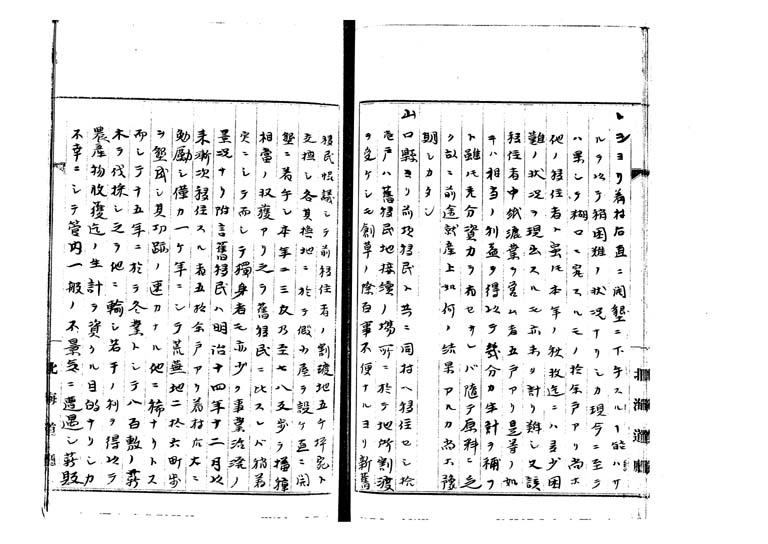 ルヲ以テ稍困難ノ状況ナリシカ現今ニ至テ
ハ果シテ糊口ニ窮スルモノ拾余戸アリ尚ホ
他ノ移住者ト雖モ本年ノ秋収迄ニハ多少困
難ノ状況ヲ現出スルモ亦未タ計リ難シ又該
移住者中紙漉業ヲ営ム者五戸アリ是等ノ如
キハ相当ノ利益ヲ得以テ幾分カ生計ヲ補フ
ト雖モ充分資力ヲ有セサレバ随テ原料ニ乏
ク故ニ前途就産上如何ノ結果アルカ尚ホ豫
期シカタシ
山口縣ヨリ前項移民ト共ニ同村ヘ移住セシ拾
壱戸ハ舊移民地接續ノ場所ニ於テ地所割渡
ヲ受ケシモ創草ノ際百事不便ナルヨリ新舊
移民協議シテ前移住者ノ割渡地五ケ坪宛ト
交換シ各其換地ニ於テ假小屋ヲ設ケ直ニ開
墾ニ着手シ本年ニ三反乃至七八反歩ヲ播種
相當ノ収穫アリ之ヲ舊移民ニ比スレバ稍着
実ニシテ而シテ獨身者モ亦少ク事業治渉ノ
景況ナリ附言舊移民ハ明治十四年十二月以
来漸次移住スル者五拾余戸アリ着村后大ニ
勉励シ僅カ一ケ年ニシテ荒蕪地二拾六町歩
ヲ墾成シ其功蹟ノ速カナル他ニ稀ナリトス
而シテ十五年ニ於テ冬業トシテ八百敷ノ薪
木ヲ伐採シ之ヲ他ニ輸シ若干ノ利ヲ得以テ
農産物収穫迄ノ生計ヲ資クル目的ナリシカ
不幸ニシテ管内一般ノ不景気ニ遭遇シ薪販
北海道廳